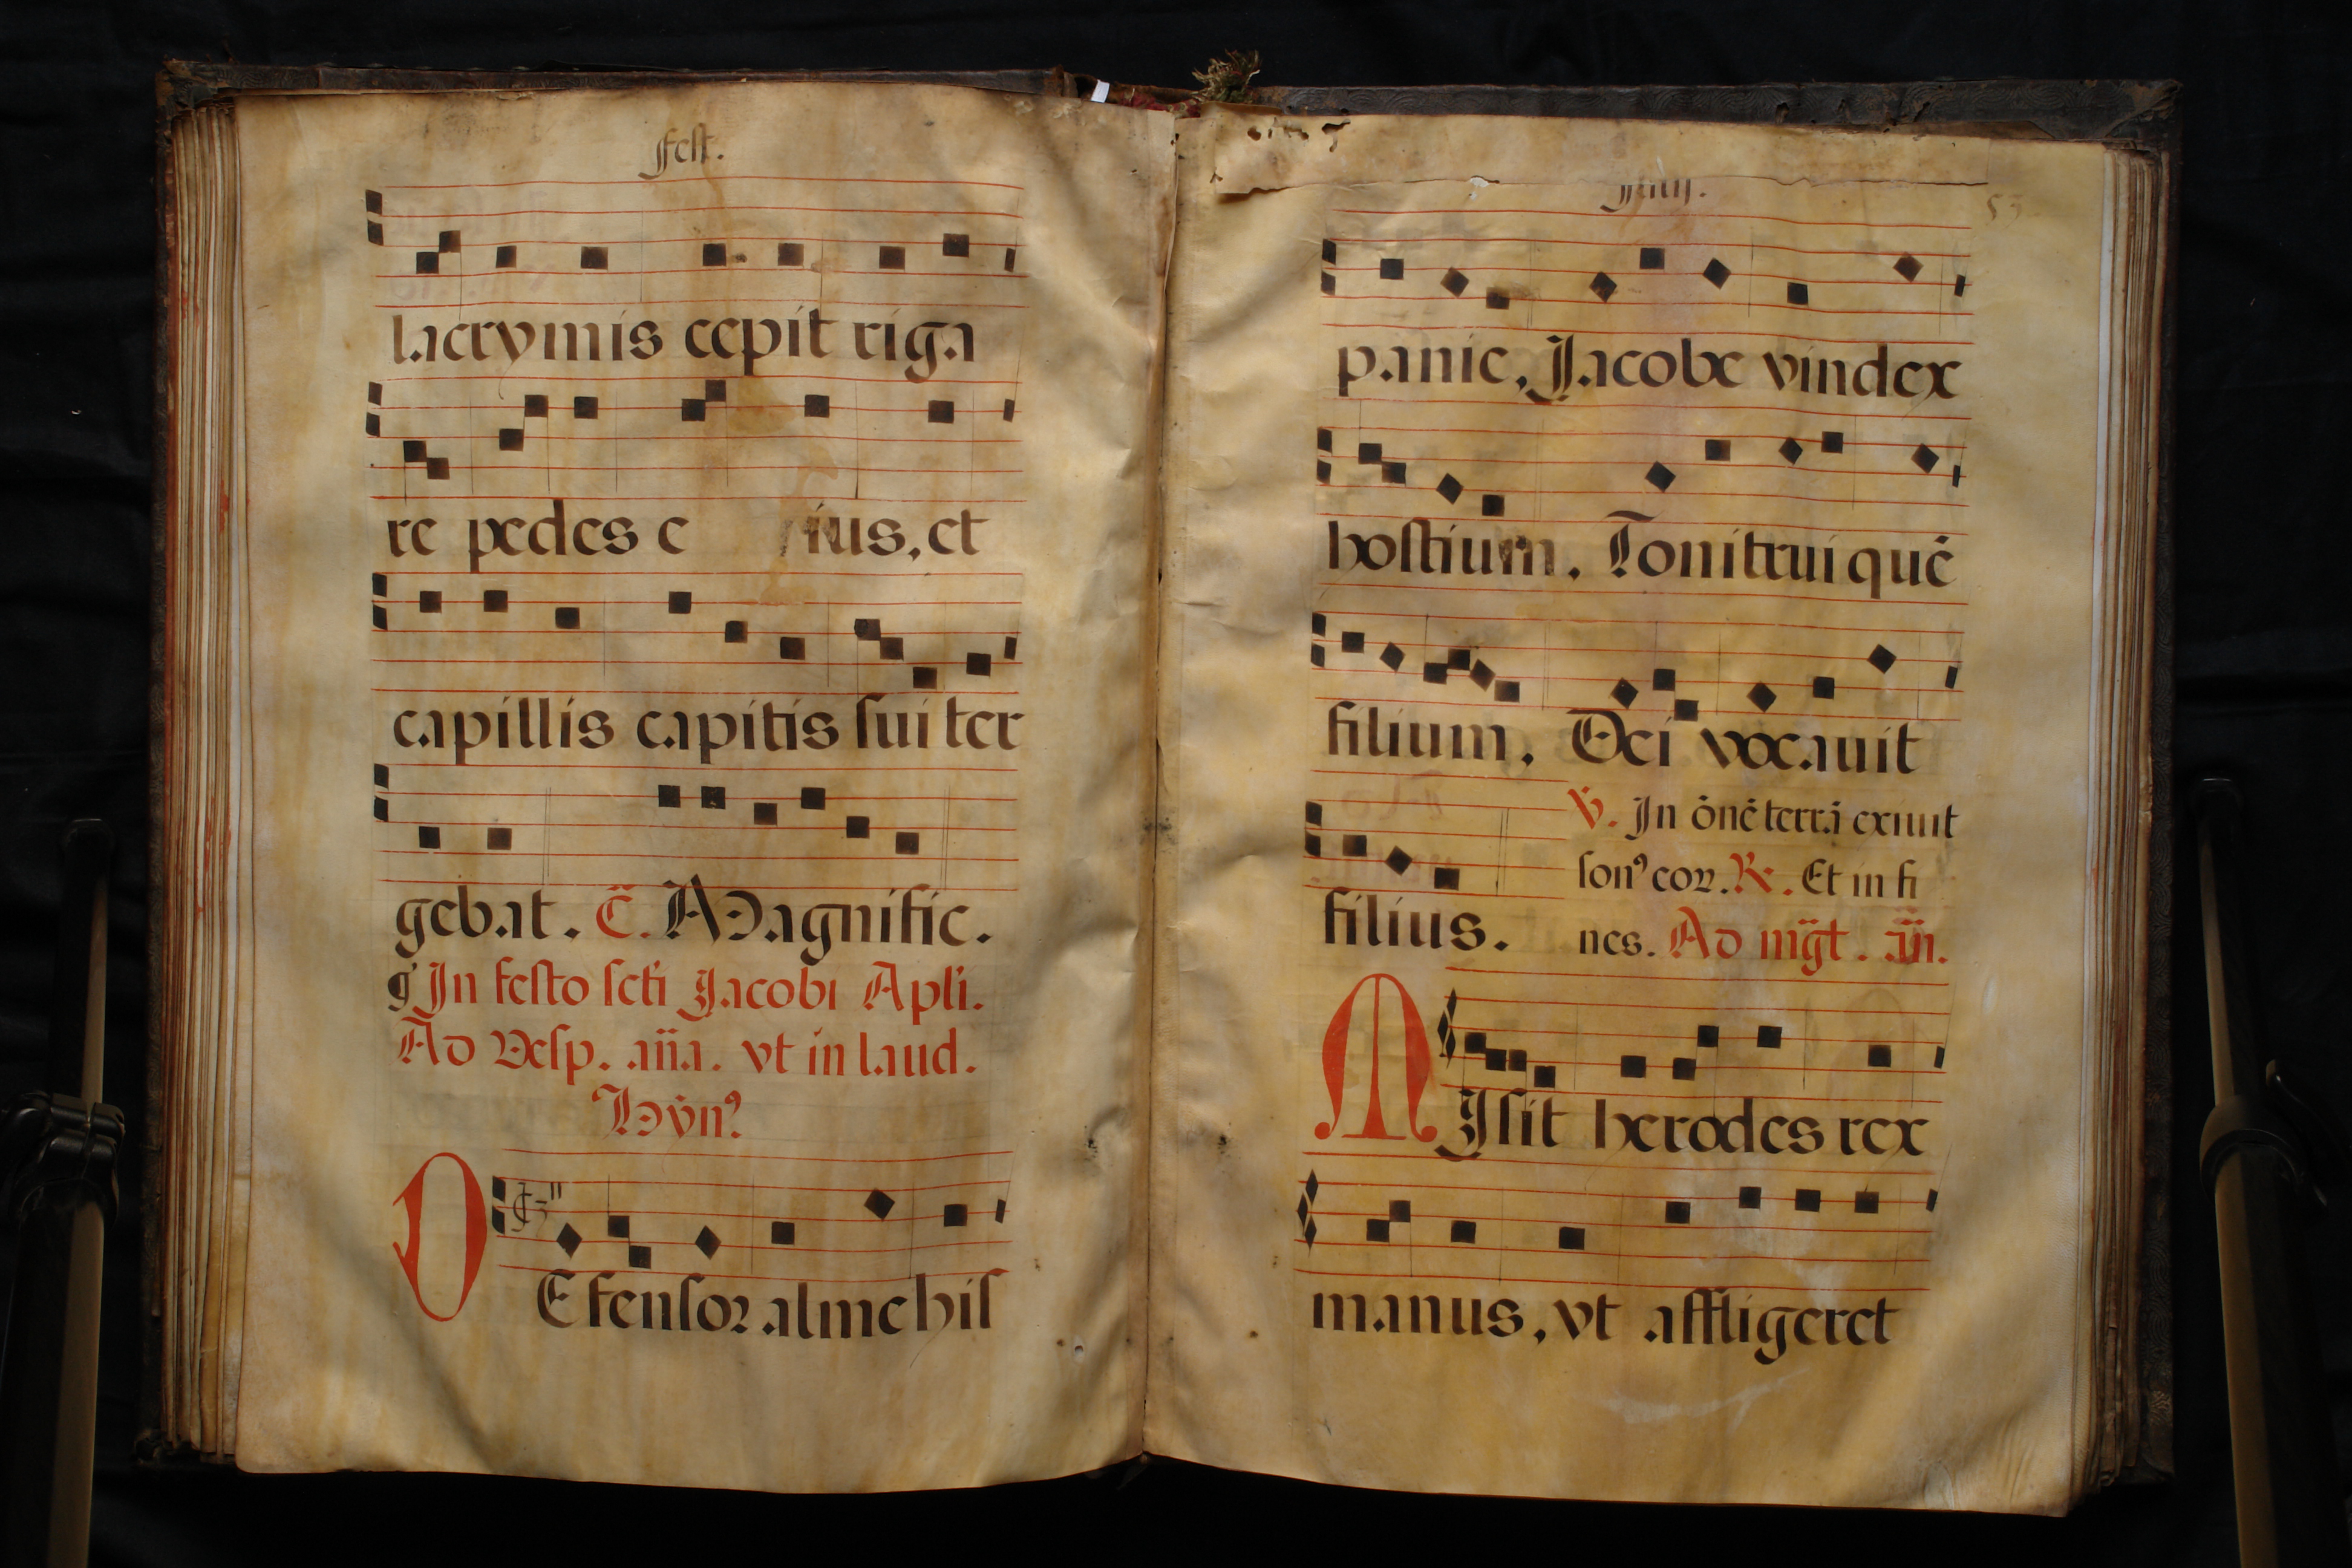 fest.
lacrymis cepit riga
re pedes e ius, et
capillis capitis sui ter
gebat. C̃. Magnific.
In festo scti Jacobi Apli.
Ad Vesp. aña. vt in laud.
Hỹn⁹
DEfensor alme his
Julij.
53
panie, Jacobe vindex
hostium. Tonitrui quē
filium. Dei vocauit
filius.
V̄. In ōnē terrā exiuit
son⁹ coꝝ. ℟. Et in fi
nes. Ad mg̃t. añ.
MIsit herodes rex
manus, vt affligeret